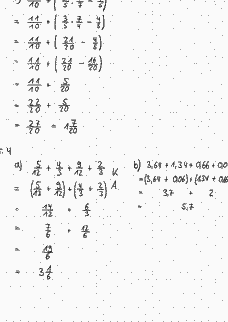 = 11/10 + ( 3/5 · 7/4 - 4/5 )
= 11/10 + ( 21/20 - 4/5 )
= 11/10 + ( 21/20 - 16/20 )
= 11/10 + 5/20
= 22/20 + 5/20
= 27/20 = 1 7/20
a) 5/12 + 4/3 + 9/12 + 2/3
= ( 5/12 + 9/12 ) + ( 4/3 + 2/3 ) A
= 14/12 + 6/3
= 7/6 + 12/6
= 19/6
= 3 1/6
b) 3,64 + 1,34 + 0,66 + 0,0
= (3,64 + 0,06) + (1,34 + 0,66
= 3,7 + 2
= 5,7